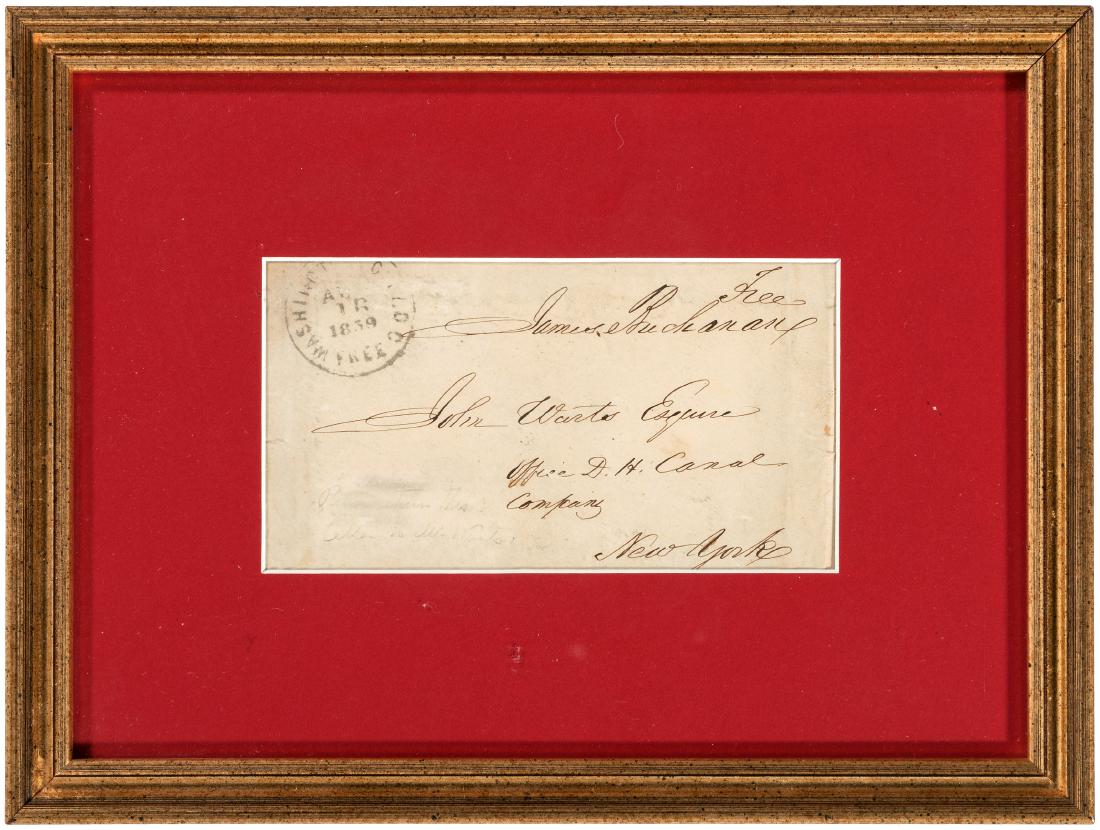 WASHINGTON CITY D.C.
18
1859
FREE
Free
James Buchanan
John Warts Esquire
Office D. H. Canal
Company
New York